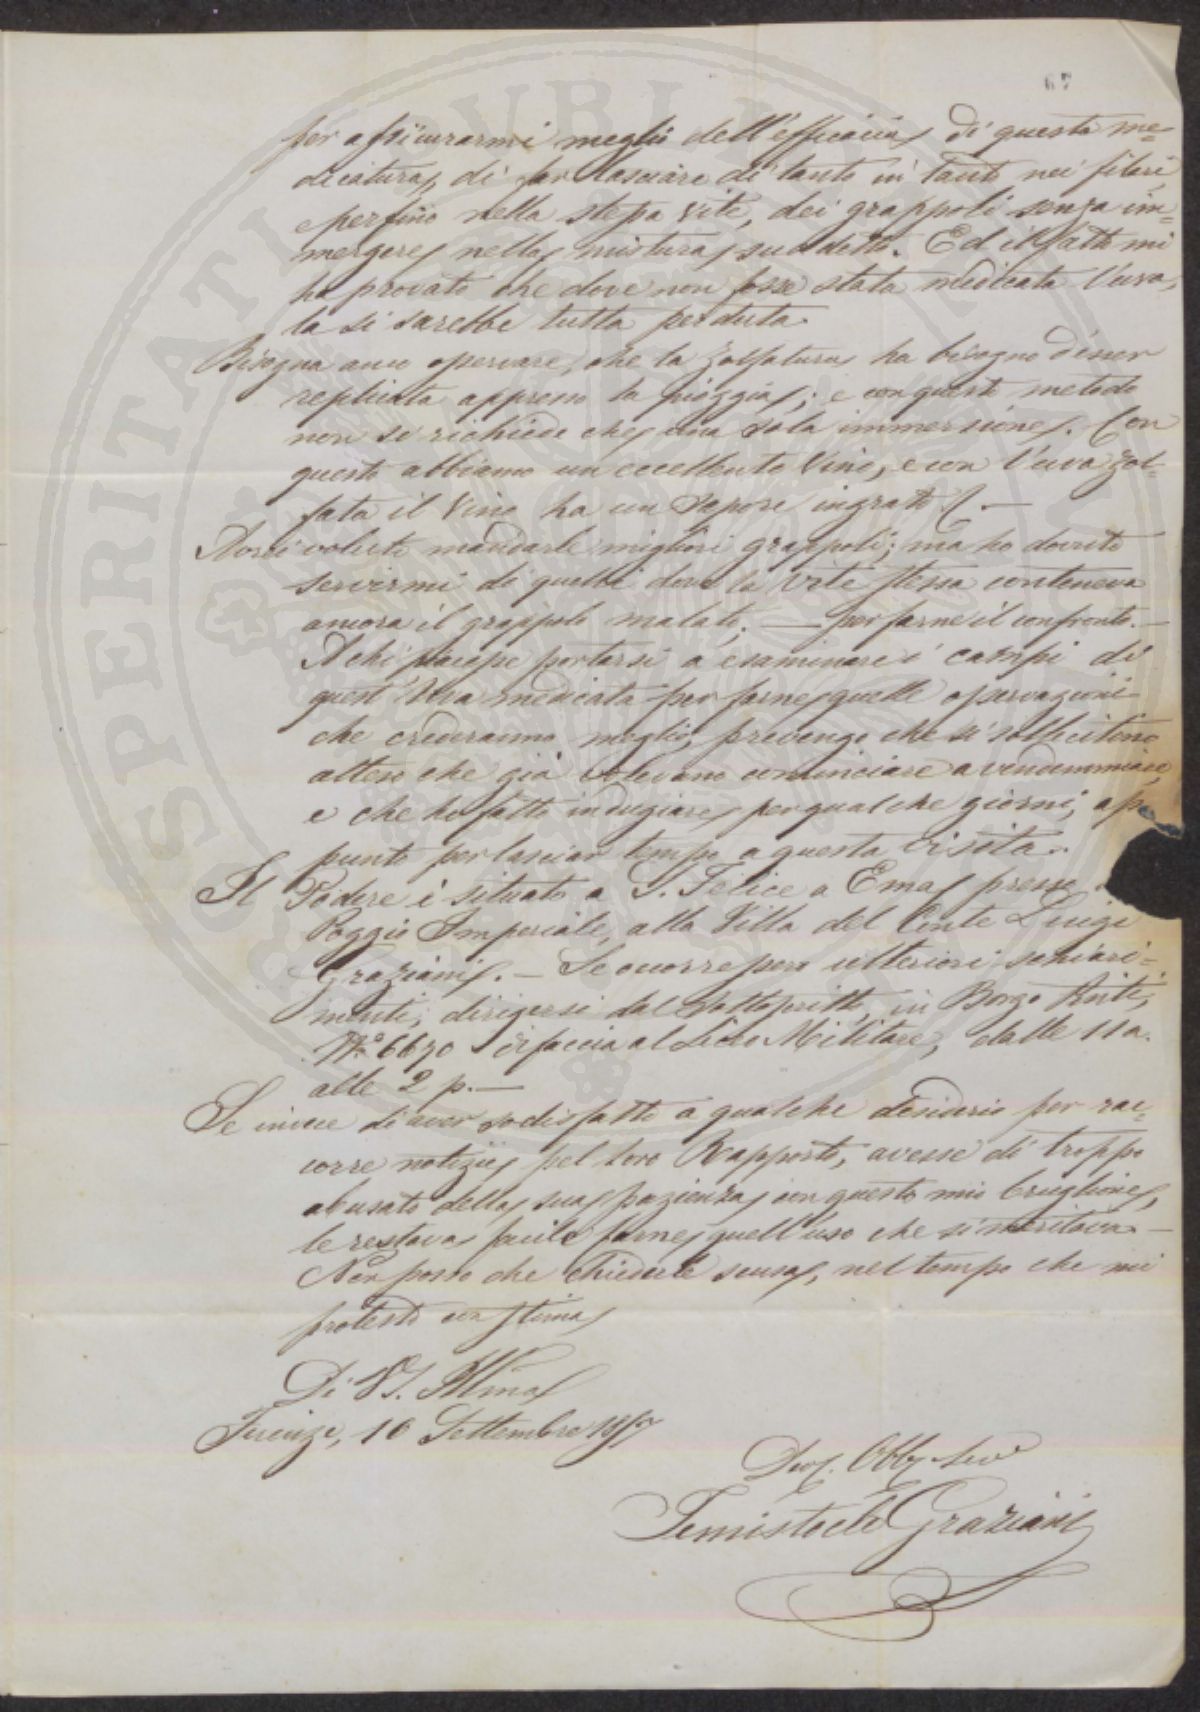 67
per assicurarmi meglio dell'efficacia di questa me=
dicatura, di far lasciare di tanto in tanto nei filari,
e perfino nella stessa vite, dei grappoli senza im=
mergere nella mistura suddetta. Ed il fatto mi
ha provato che dove non fosse stata medicata l'uva,
la si sarebbe tutta perduta.
Bisogna anco osservare, che la zolfatura ha bisogno d'esser
replicata appresso la pioggia; e con questo metodo
non si richiede che una sola immersione. Con
questo abbiamo un eccellente Vino, e con l'uva zol=
fata il Vino ha un sapore ingrato. —
Avrei voluto mandarle migliori grappoli; ma ho dovuto
servirmi di quelli dove la Vite stessa conteneva
ancora il grappolo malato, — per farne il confronto. —
A chi piacesse portarsi a esaminare i campi di
quest'Uva medicata per farne quelle osservazioni
che crederanno meglio, prevengo che si sollecitino
atteso che già volevano cominciare a vendemmiare,
e che ho fatto indugiare per qualche giorni, ap
punto per lasciar tempo a questa visita.
Il Podere è situato a S. Felice a Ema, presso
Poggio Imperiale, alla Villa del Conte Luigi
Graziani. — Se occorressero ulteriori schiari=
menti, dirigersi dal sottoscritto, in Borgo Pinti,
N.° 6690 difaccia al Liceo Militare, dalle 11 a.
alle 2 p. —
Se invece di aver sodisfatto a qualche desiderio per rac=
corre notizie pel loro Rapporto, avesse di troppo
abusato della sua pazienza con questo mio bruglione,
le restava facile farne quell'uso che si meritava. —
Non posso che chiederle scusa, nel tempo che mi
protesto con stima
Di VS. Illma
Firenze, 16 Settembre 1857
Dev. Obb. Serv
Temistocle Graziani